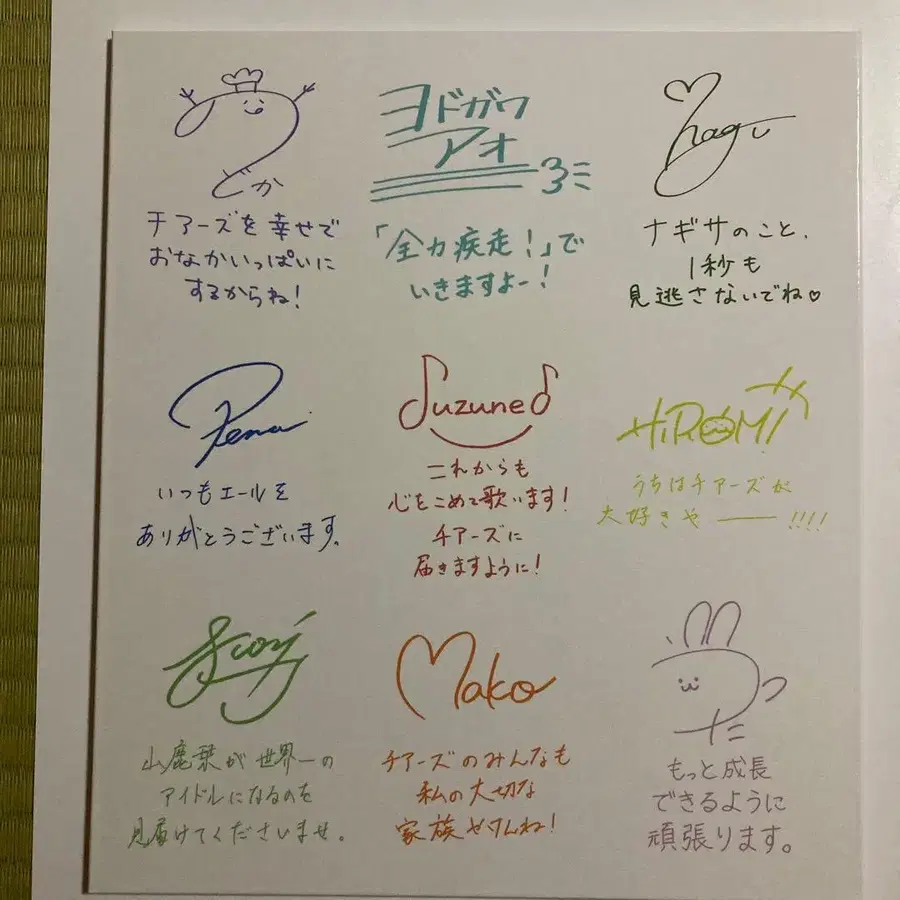 どか
チアーズを幸せで
おなかいっぱいに
するからね!
ヨドガワ
アオ
「全力疾走!」で
いきますよー!
nagi
ナギサのこと、
1秒も
見逃さないでね♡
Rena
いつもエールを
ありがとうございます。
Suzune
これからも
心をこめて歌います!
チアーズに
届きますように!
HiROMi
うちはチアーズが
大好きや――!!!!
山鹿栞が世界一の
アイドルになるのを
見届けてくださいませ。
Mako
チアーズのみんなも
私の大切な
家族やけんね!
もっと成長
できるように
頑張ります。